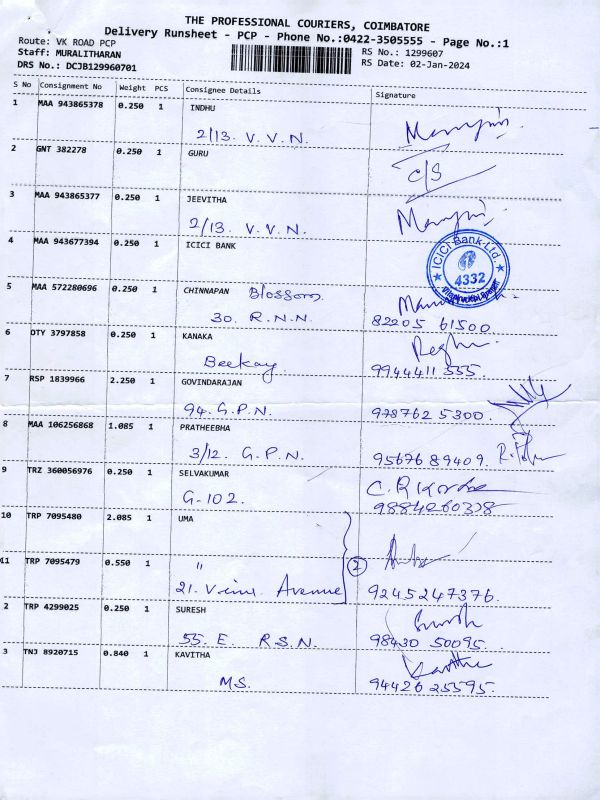 THE PROFESSIONAL COURIERS, COIMBATORE
Delivery Runsheet - PCP - Phone No.:0422-3505555 - Page No.:1
Route: VK ROAD PCP
RS No.: 1299607
Staff: MURALITHARAN
RS Date: 02-Jan-2024
DRS No.: DCJB129960701
S No Consignment No Weight PCS Consignee Details Signature
1 MAA 943865378 0.250 1 INDHU
2/13. V. V. N.
2 GNT 382278 0.250 1 GURU
C/S
3 MAA 943865377 0.250 1 JEEVITHA
2/13. V. V. N.
4 MAA 943677394 0.250 1 ICICI BANK
ICICI Bank Ltd.
4332
5 MAA 572280696 0.250 1 CHINNAPAN Blossom
30. R. N. N. 82205 61500
6 OTY 3797858 0.250 1 KANAKA
Beekay 9944411 555.
7 RSP 1839966 2.250 1 GOVINDARAJAN
94. G. P. N. 978762 5300.
8 MAA 106256868 1.085 1 PRATHEEBHA
3/12. G. P. N. 95676 89409.
9 TRZ 360056976 0.250 1 SELVAKUMAR
G-102.
10 TRP 7095480 2.085 1 UMA
2
11 TRP 7095479 0.550 1 "
21. Avenue 9245247376.
2 TRP 4299025 0.250 1 SURESH
55. E. R. S. N. 98430 50095
3 TNJ 8920715 0.840 1 KAVITHA
M.S. 94426 25595.